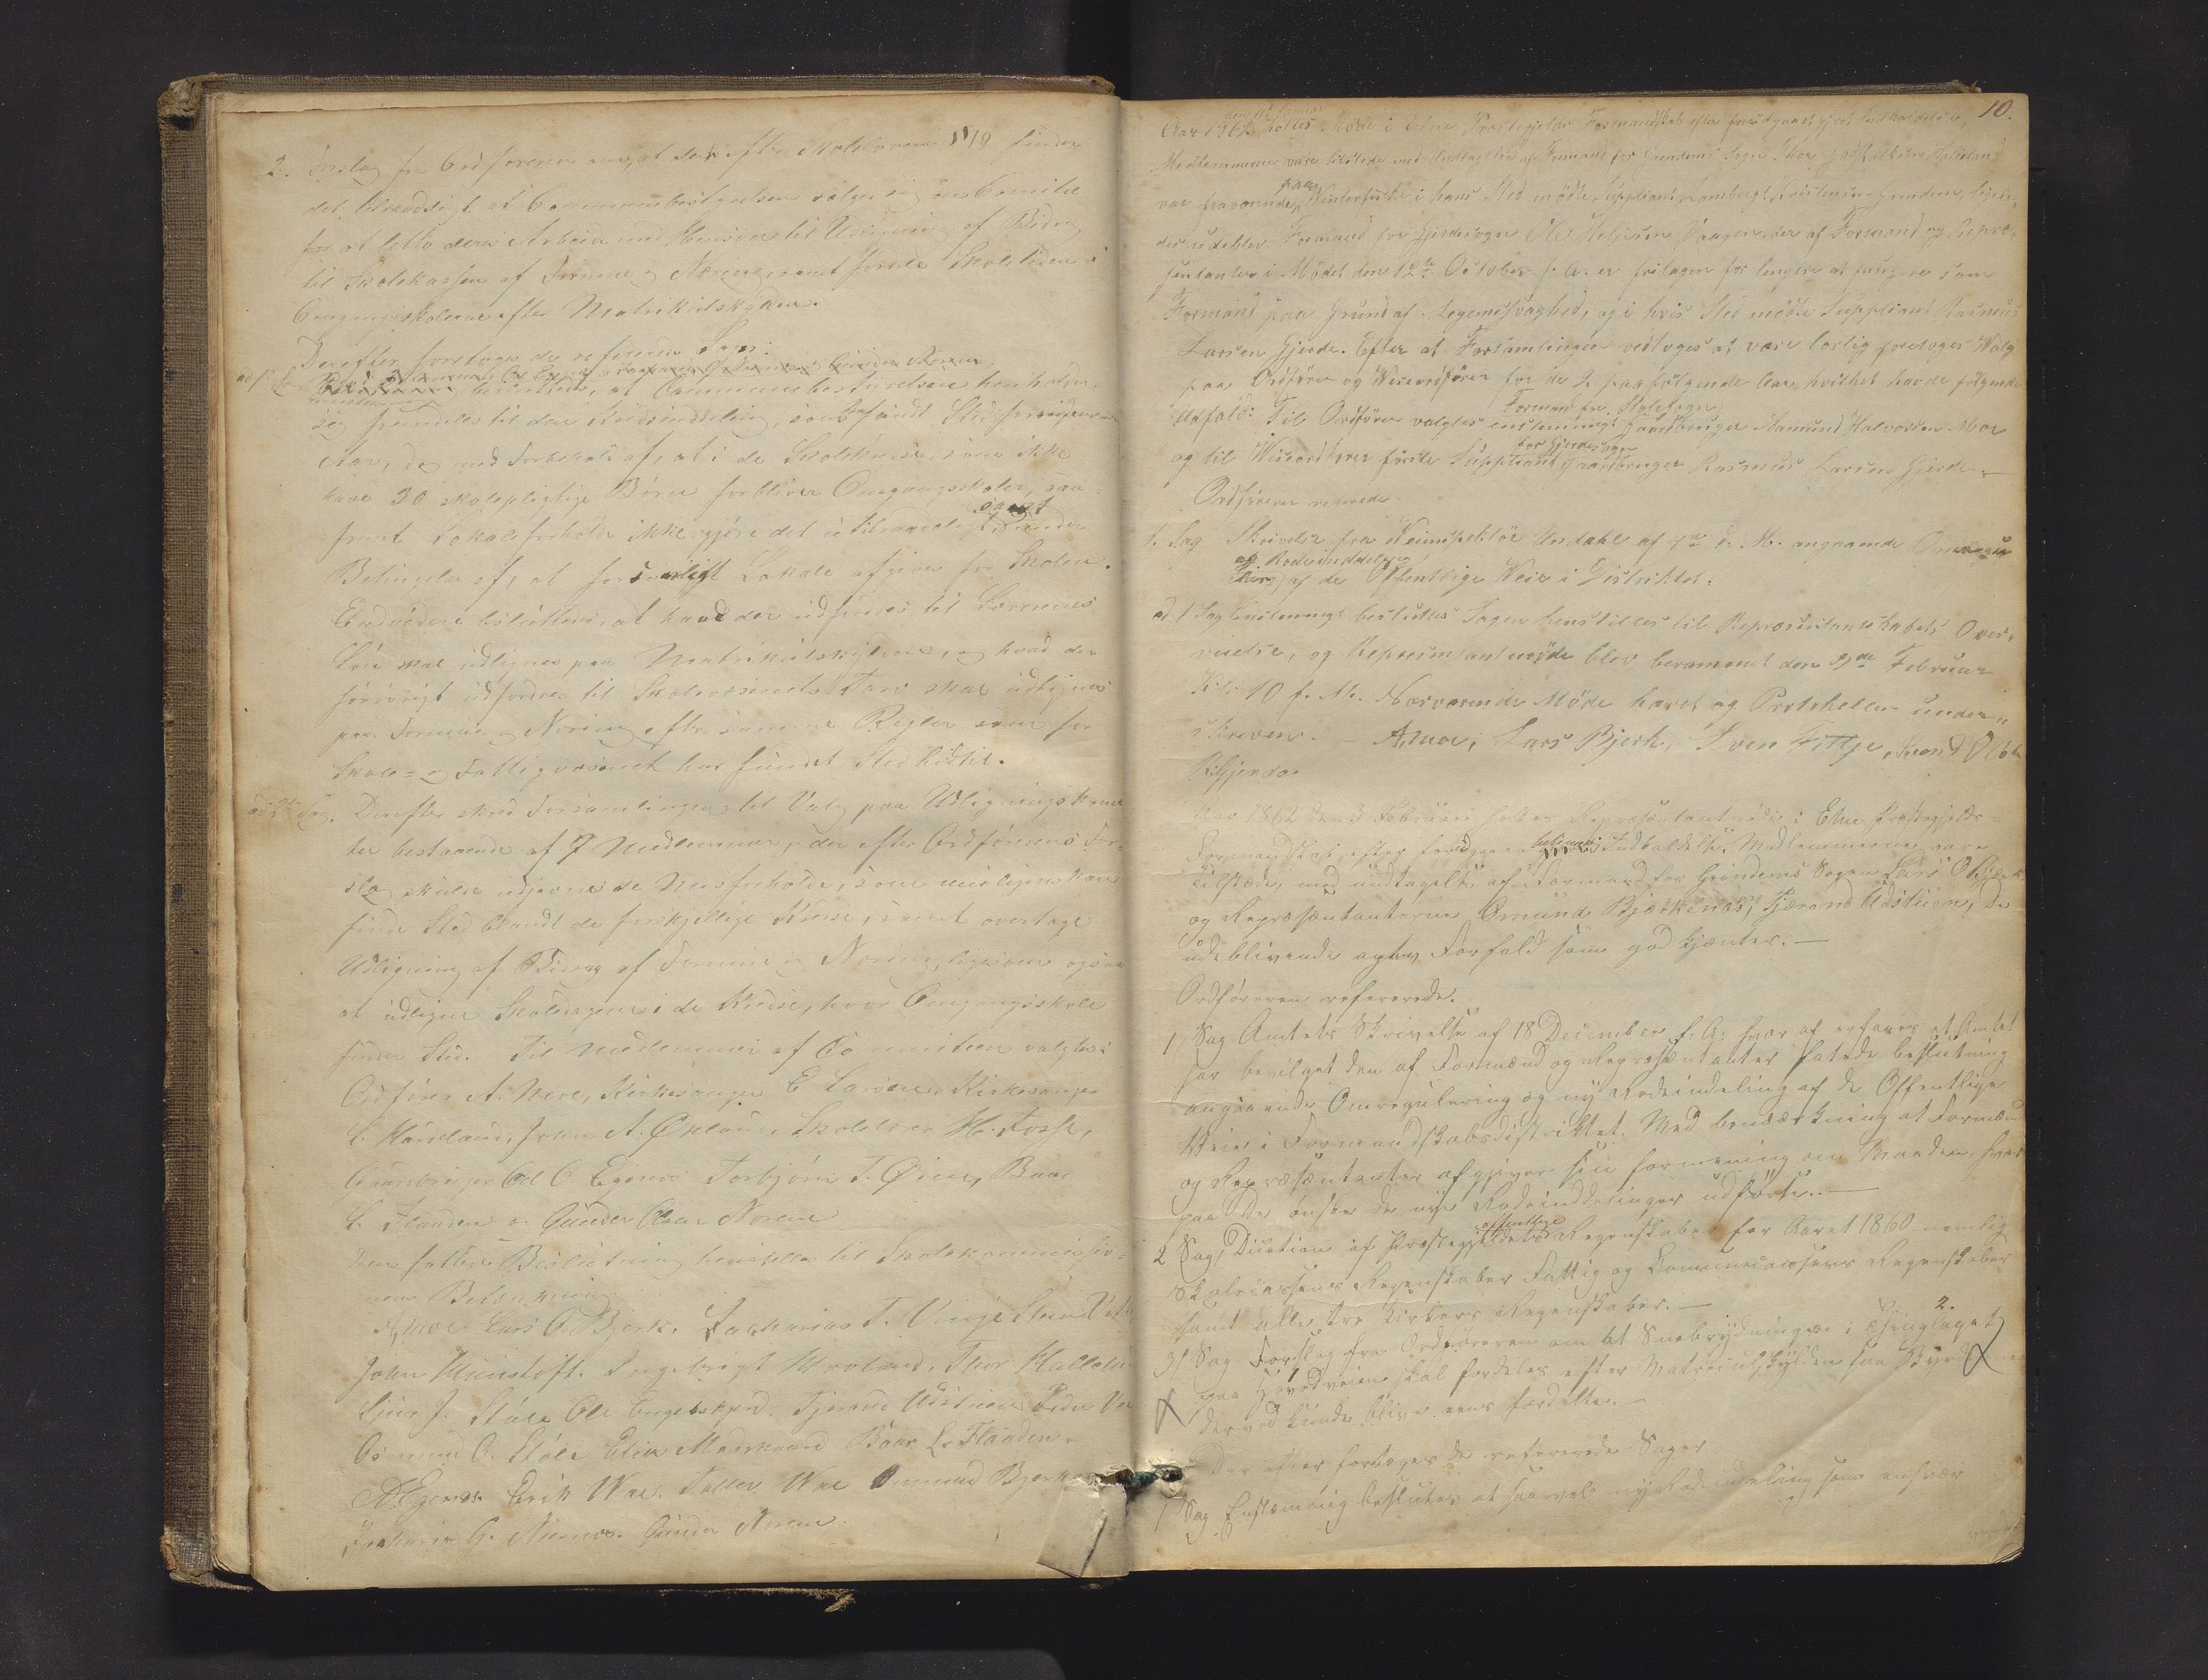 2. Forslag fra Ordføreren om, at der efter Skoleloven § 19 finder
det tilraadeligt, at Communebestyrelsen vælger sig en Comitee
for at lette deres Arbeide med Hensyn til Udligning af Bidrag
til Skolekassen af Formue og Næring, samt fordele Skoletiden i
Omgangsskolerne efter Matrikulskylden.
Derefter foretoges de refererede Sager:
besluttedes, at Communebestyrelsen henholder
sig fremdeles til den Kredsinddeling, som fandt Sted forrige
Aar, dog med Forbehold af, at i de Skolekredse, som ikke
have 30 skolepligtige Børn forbliver Omgangsskoler, saa-
fremt Lokalforholde ikke gjøre det utilraadeligt, samt under
Betingelse af, at forsvarligt Lokale afgives for Skolen.
Endvidere besluttedes, at hvad der udfordres til Lærernes
Løn skal udlignes paa Matrikulskylden, og hvad der
forøvrigt udfordres til Skolevæsenets Tarv skal udlignes
paa Formue og Næring efter samme Regler som for
Skole- og Fattigvæsenet har fundet Sted hidtil.
ad 2den Sag. Derefter skred Forsamlingen til Valg paa Udlignings
bestaaende af 7 Medlemmer, der efter Ordførerens For-
slag skulde udjevne de Misforholde, som muligens kan
finde Sted blandt de forskjellige Kredse, samt overtage
Udligning af Bidrag af Formue og Næring, ligesom ogsaa
at udligne Skoledagene i de Kredse, hvor Omgangsskole
finder Sted. Til Medlemmer af Committeen valgtes:
Ordfører A. Moe, Kirkesanger E. Larsen, Kirkesanger
L. Haaland, John A. Økland, Skolelærer H. Fosse,
Gaardbruger Ed O. Egenes Torbjørn T. Øien, Baar
L. Flaaden og Gunder Olsen Norem
Den fattede Beslutning henstilles til Skolekommissio-
nens Betænkning
A Moe Lars O. Bjerk. Zacharias T. Vinje
John Ingebrigt Hovland. Thor Halleland
J. Støle Ole Engelsgjerd. Tjerand Udstuen Peder
Osmund O. Støle Elias Baar L. Flaaden.
Egenes. Erik Wae. Tollev Wae Omund Bjerk
G. Gunder Norem.
10.
den 11te Januar
Aar 1862 holtes Møde i Etne Præstegjelds Formandskab efter foreudgaaet Indkaldelse.
Medlemmerne vare tilstede med Undtagelse af Formand for Grindems Sogn Thor Halleland
paa
var fraværende Winterfiske i hans Sted mødte Suppleant Grindem, ligele-
des udeblev Formand for Gjerdesogn Ole Heljesen Vaagen, der af Formænd og Repræ-
sentanter i Mødet den 12te October f. A. er fritagen for lengere at fungere som
Formand paa Grund af Legemssvaghed, og i hvis Sted mødte Suppleant Rasmus
Larsen Gjerde. Efter at Forsamlingen vedtoges at være lovlig foretoges Valg
paa Ordfører og Wiseordfører for de 2 paafølgende Aar hvilket havde følgende
Formand for Stølesogn
Udfald: Til Ordfører valgtes enstemmigt Gaardbruger Aamund Halvorsen Moe
for Gjerdesogn
og til Wiseordfører første Suppleant Gaardbruger Rasmus Larsen Gjerde. –
Ordføreren refererede.
1. Sag Skrivelse fra Veiinspektør Undahl af 7de d. M. angaaende Omregu-
og Rodeinddeling
lering af de Offentlige Veie i Distriktet.
ad 1 Sag Enstemmigt besluttes Sagen henstilles til Repræsentantskabets Over-
veielse, og Repræsentantmøde blev berammet den Februar
Kl. 10 f. M. Nærværende Møde hævet og Protokollen under-
skreven. – A. Moe, Lars Bjerk, Sven Fittje,
R. Gjerde.
Aar 1862 den 3 Februari holtes Repræsentantmøde i Etne Præstegjelds
Formandskab, efter forudgaaen Indkaldelse. Medlemmerne vare
tilstede, med undtagelse af Formand for Grindems Sogen Lars O Bjerk
og Repræsentanterne Omund Bjerkenæs, Tjærand Udstuen, De
udeblivende agtes Forfald som godkjentes. –
Ordføreren refererede.
1 Sag Amtets Skrivelse af 18 December f. A. hvor af erfares at Amtet
har bevilget den af Formænd og Repræsentanter fatede beslutning
angaaende Omregulering og ny Rodeindeling af de Offentlige
Veie i Formandskabsdistriktet. Med bemærkning at Formænd
og Repræsentanter afgiver sin formening om Maaden, hvor
paa De ønske de nye Rodeinddelinger udførte. –
offentlige
2 Sag, Dicution af Præstegjeldets Regenskaber for Aaret 1860 nemlig
Skolecassens Regenskaber Fattig og Communecassens Regenskaber
samt alle tre Kirkers Regenskaber. –
2.
3 Sag Forslag fra Ordføreren om at Snebrydningen i Thinglaget
paa Hovedveiene skal fordeles efter Matrikulskylden saa Byrd
der ved kunde blive eens fordelte. –
Der efter fortages de refererede Sager
1 Sag Enstemmig beslutes at saavel nye Rodeindeling som enhver